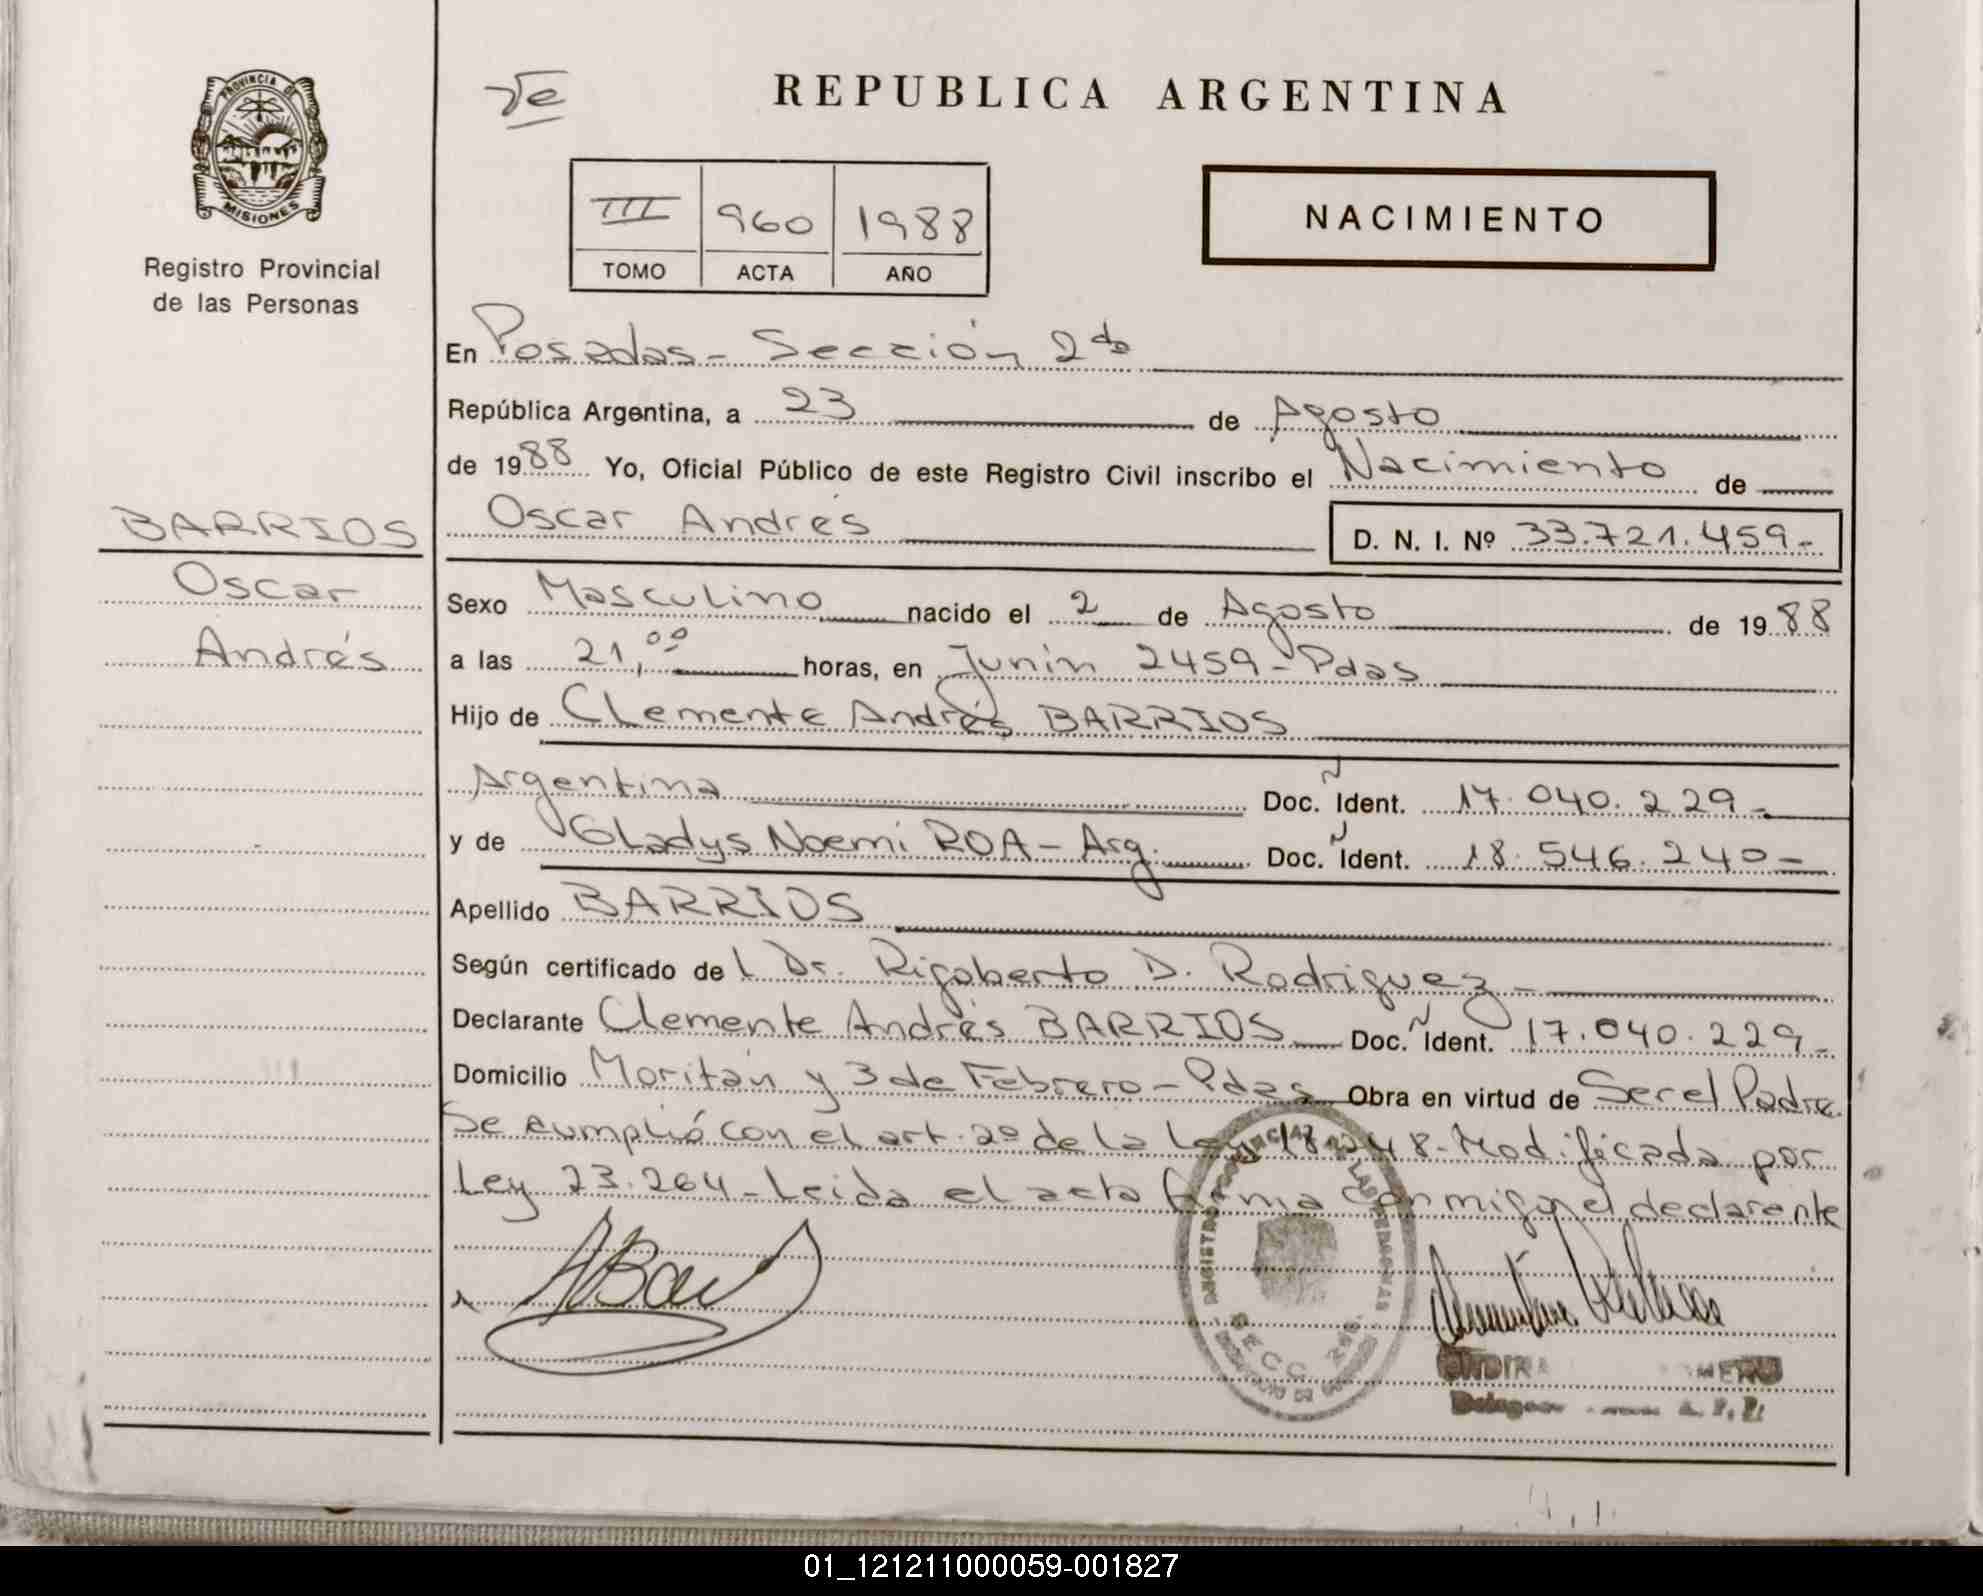 PROVINCIA DE
MISIONES
Registro Provincial
de las Personas
BARRIOS
Oscar
Andrés
REPUBLICA ARGENTINA
III 960 1988
TOMO ACTA AÑO
NACIMIENTO
En Posadas - Sección 2da
República Argentina, a 23 de Agosto
de 1988 Yo, Oficial Público de este Registro Civil inscribo el Nacimiento de
Oscar Andrés D. N. I. Nº 33.721.459-
Sexo Masculino nacido el 2 de Agosto de 1988
a las 21,00 horas, en Junín 2459 - Pdas
Hijo de Clemente Andrés BARRIOS
Argentina Doc. Ñ Ident. 17.040.229-
y de Gladys Noemí ROA - Arg. Doc. Ñ Ident. 18.546.240-
Apellido BARRIOS
Según certificado del Dr. Rigoberto D. Rodriguez -
Declarante Clemente Andrés BARRIOS Doc. Ñ Ident. 17.040.229-
Domicilio Moritán y 3 de Febrero - Pdas Obra en virtud de Ser el Padre.
Se cumplió con el art. 2º de la Ley 18.248 - Modificada por
Ley 23.264 - Leida el acta firma conmigo el declarante
SECC. 2da.
01_121211000059-001827